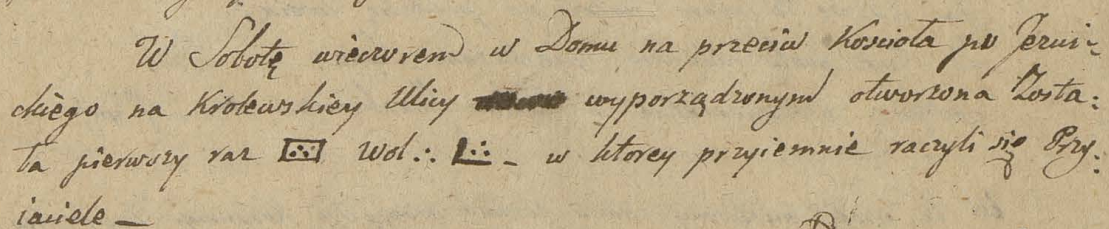 W Sobotę wieczorem w Domu na przeciw Kościoła po Jezui-
ckiego na Krolewskiey Ulicy wyporządzonym otworzona Zosta:
ła pierwszy raz Wol∴ w ktorey przyiemnie raczyli się Przy:
iaciele –